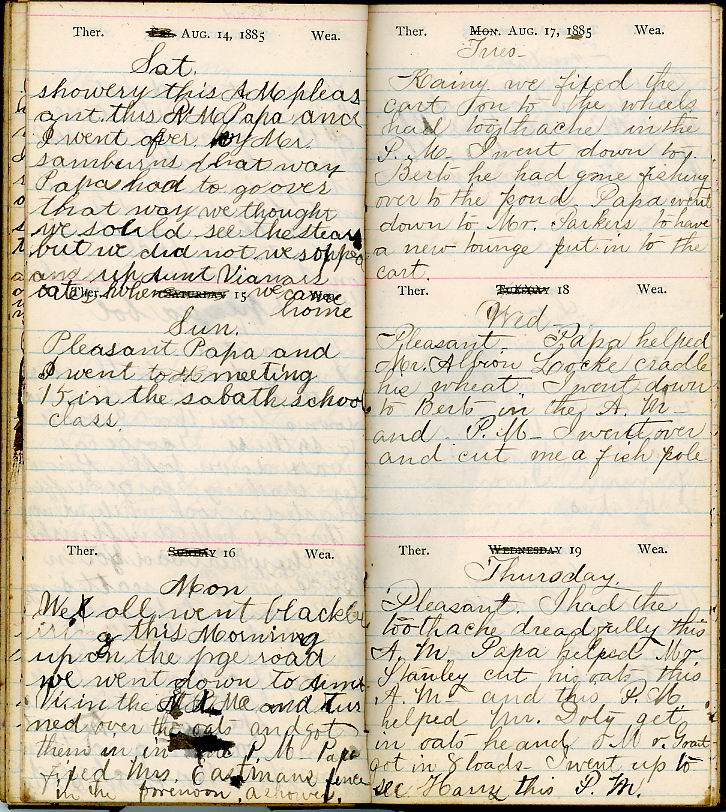 Ther. Fri. Aug. 14, 1885 Wea.
Sat.
showery this A M pleas
ant this P. M Papa and
I went over by Mr.
samburns that way
Papa had to go over
that way we thought
we sould see the steam
but we did not we stopped
and up Aunt Vianais
oats when we came
home
Ther. Saturday 15 Wea.
Sun.
Pleasant Papa and
I went to meeting
15 in the sabath school
class.
Ther. Sunday 16 Wea.
Mon
We all went blackbe
iring this Morning
up on the page road
we went down to Aunt
Vi. in the and tur
ned over the oats and got
them in in P. M- Papa
fixed Mrs. Eastmans fence
in the forenoon, a shower.
Ther. Mon. Aug. 17, 1885 Wea.
Tues-
Rainy we fixed the
cart on to the wheels
had toothache in the
P. M. I went down to
Berts he had gone fishing
over to the pond. Papa went
down to Mr. Parkers to have
a new tounge put in to the
cart.
Ther. Tuesday 18 Wea.
Wed
Pleasant Papa helped
Mr. Albion Locke cradle
his wheat I went down
to Berts in the A. M-
and P. M- I went over
and cut me a fish pole
Ther. Wednesday 19 Wea.
Thursday.
Pleasant. I had the
toothache dreadfully this
A. M Papa helped Mr
Stanley cut his oats this
A. M- and this P. M
helped Mr. Doty get
in oats he and Mr.
got in 8 loads I went up to
see Harry this P. M.